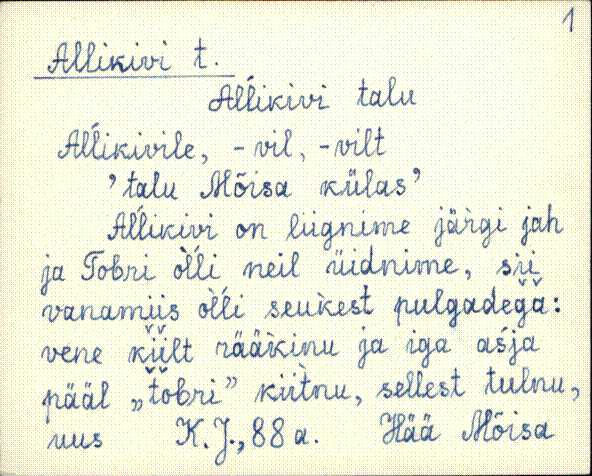 1
Allikivi t.
Aĺĺikivi talu
Aĺĺikivile, -vil, -vilt
’talu Mõisa külas’
Aĺĺikivi on liignime järgi jah
ja Tobri òĺĺi neil üidnime, sii
vanamiis òĺĺi seukest pulgadega:
vene kiilt rääkinu ja iga aśja
pääl „tobri” kiitnu, sellest tulnu,
uus K.J., 88 a. Hää Mõisa